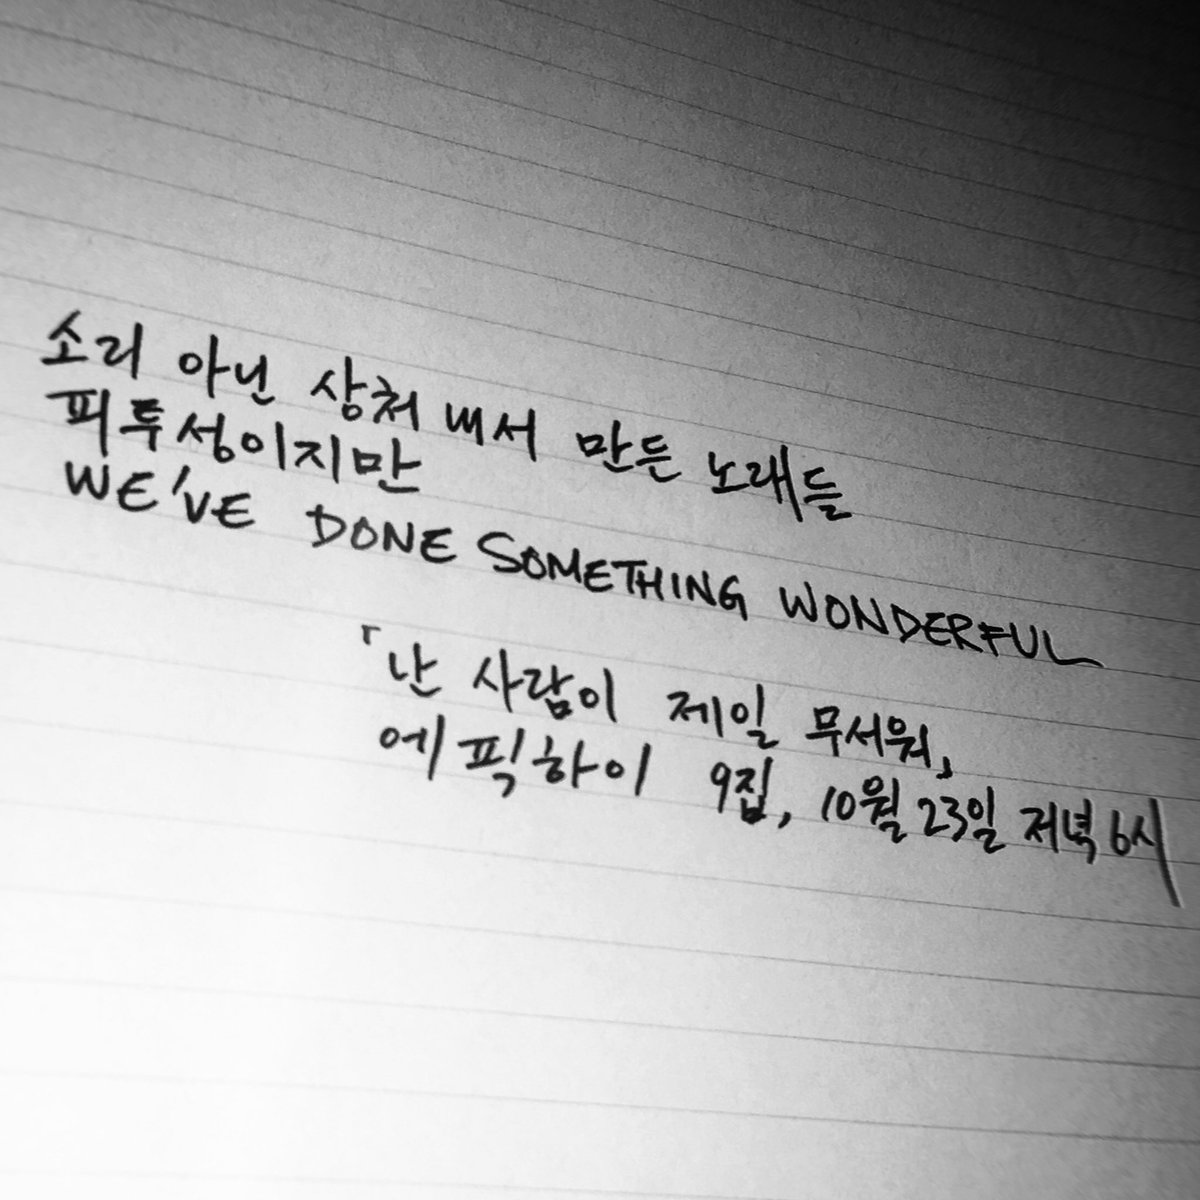 소리 아닌 상처 내서 만든 노래들
피투성이지만
WE'VE DONE SOMETHING WONDERFUL
「난 사람이 제일 무서워」
에픽하이 9집, 10월 23일 저녁 6시